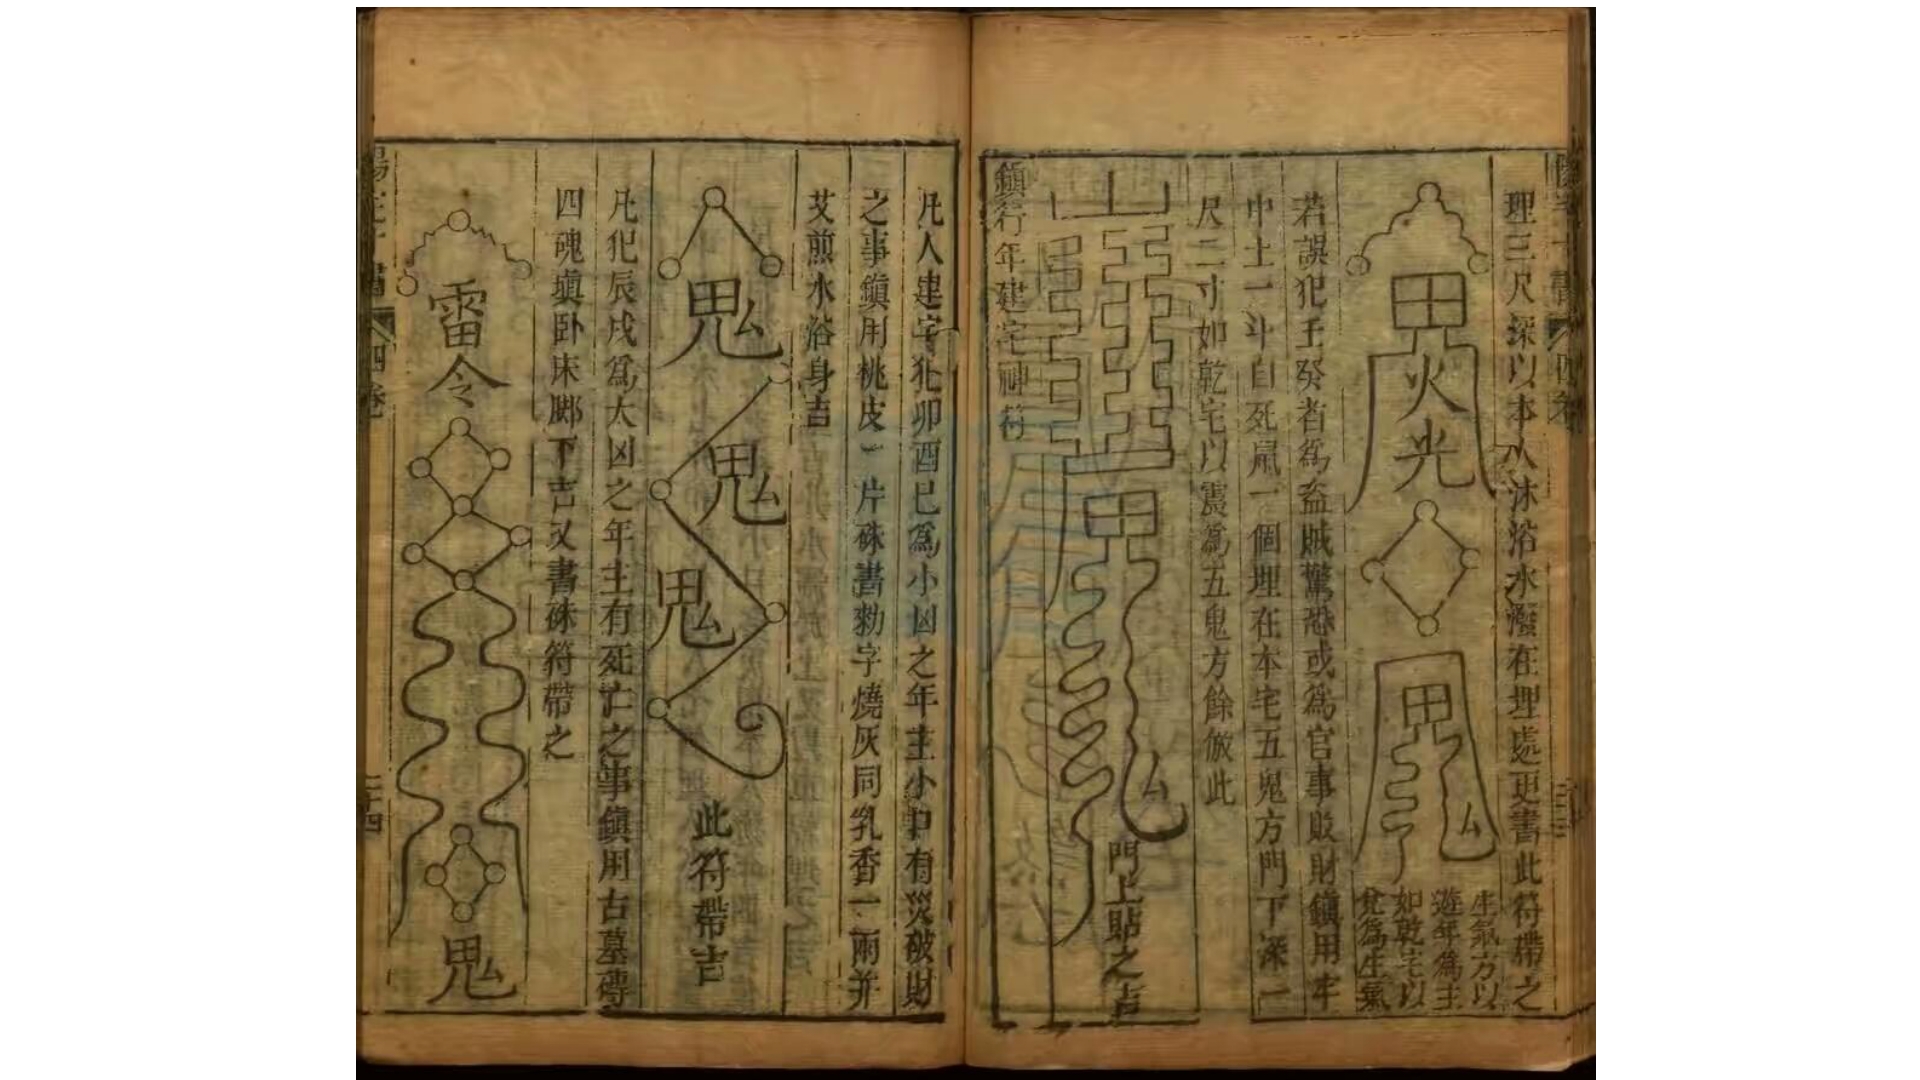 理三尺深以本人沐浴水潑在埋處更書此符帶之
𤰞火光
生氣方以
遊年爲主
如乾宅以
兌爲生氣
若誤犯壬癸者爲盗賊驚恐或爲官事敗財鎮用牢
中土一斗自死鼠一個埋在本宅五鬼方門下深一
尺二寸如乾宅以震爲五鬼方餘倣此
門上貼之吉
鎮行年建宅神符
凡人建宅犯卯酉巳爲小凶之年主小口有災破財
之事鎮用桃皮一片硃書勅字燒灰同乳香一兩并
艾煎水浴身吉
鬼
鬼
鬼
此符帶吉
凡犯辰戌爲大凶之年主有死亡之事鎮用古墓磚
四塊塡卧床脚下吉又書硃符帶之
雷令
鬼
四卷
二十四